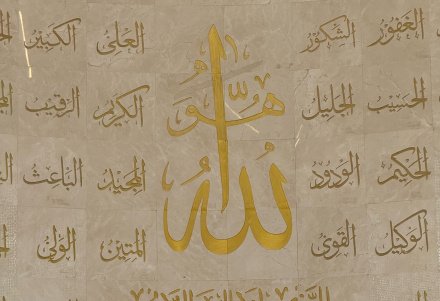 الغفور الشكور العلي الكبير
هو
الحسيب الجليل الكريم الرقيب
الله
الحكيم الودود المجيد الباعث
الوكيل القوي المتين الولي